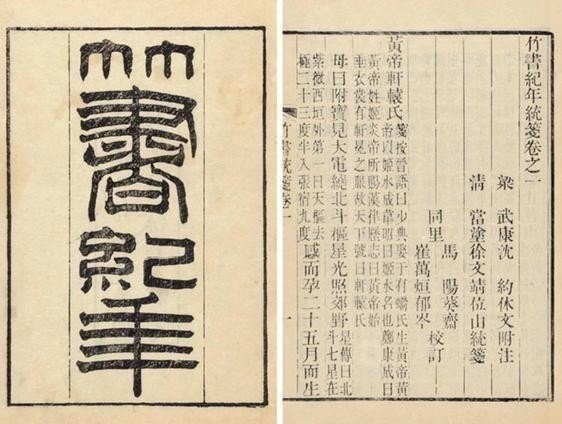 竹書紀年
竹書紀年統箋卷之一
梁 武康沈 約休文附注
清 當塗徐文靖位山統箋
馬 陽葵齋
同里 校訂
崔萬烜郁岑
黃帝軒轅氏 箋按晉語曰少典娶于有蟜氏生黃帝黃
帝以姬水成韋昭曰姬水名也鄭康成曰
黃帝姓姬炎帝所賜漢律歷志曰黃帝始
垂衣裳有軒冕之服故天下號曰軒轅氏
母曰附寶見大電繞北斗樞星光照郊野 星傳曰北
斗七星在
紫微西垣外第一曰天樞去
極二十三度半入張宿九度 感而孕二十五月而生
竹書統箋卷一 一